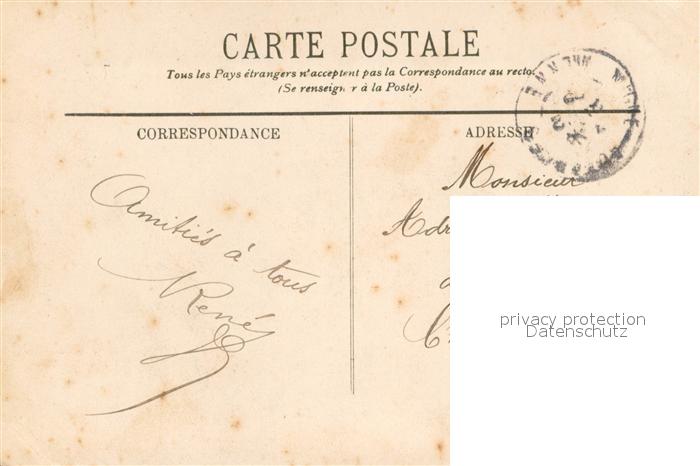 CARTE POSTALE
Tous les Pays étrangers n'acceptent pas la Correspondance au recto.
(Se renseign r à la Poste).
CORRESPONDANCE
ADRESSE
Monsieur
Amitiés à tous
René
privacy protection
Datenschutz